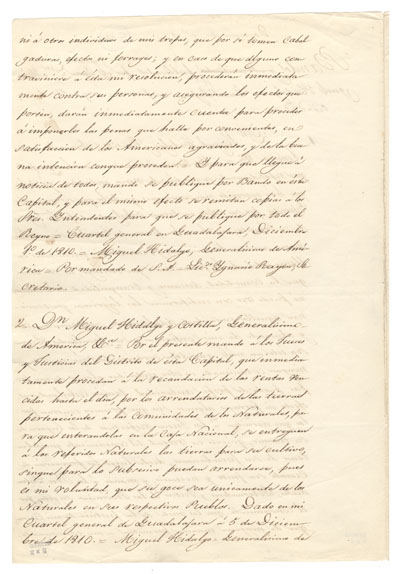 ni á otro individuo de mis tropas, que por sí tomen cabal
gaduras, efecto ni forrages; y en caso de que alguno con
traviniere á esta mi resolucion, procederán inmediata
mente contra sus personas, y asegurando los efectos que
porten, darán inmediatamente cuenta para proceder
á imponerles las penas que halle por convenientes, en
satisfaccion de los Americanos agraviados, y de la bue
na intencion conque procedo = Y para que llegue á
noticia de todos, mando se publique por Bando en esta
Capital, y para el mismo efecto se remitan copias á los
Sres. Intendentes para que se publique por todo el
Reyno = Cuartel general en Guadalajara, Diciembre
1º de 1810. = Miguel Hidalgo, Generalisimo de Amé
rica = Por mandado de S. A. = Licº. Ygnacio Rayon, Se
cretario.
2. Dn. Miguel Hidalgo y Costilla, Generalisimo
de America, &a. Por el presente mando á los Jueces
y Justicias del Distrito de esta Capital, que inmedia
tamente procedan á la recaudacion de las rentas ven
cidas hasta el dia, por los arrendatarios de las tierras
pertenecientes á las comunidades de los Naturales, pa
ra que enterandolas en la Caja Nacional, se entreguen
á los referidos Naturales las tierras para su cultivo,
sinque para lo subcesivo puedan arrendarse, pues
es mi voluntad, que su goce sea unicamente de los
Naturales en sus respectivos Pueblos. Dado en mi
Cuartel general de Guadalajara á 5 de Diciem
bre de 1810. = Miguel Hidalgo, Generalisimo de